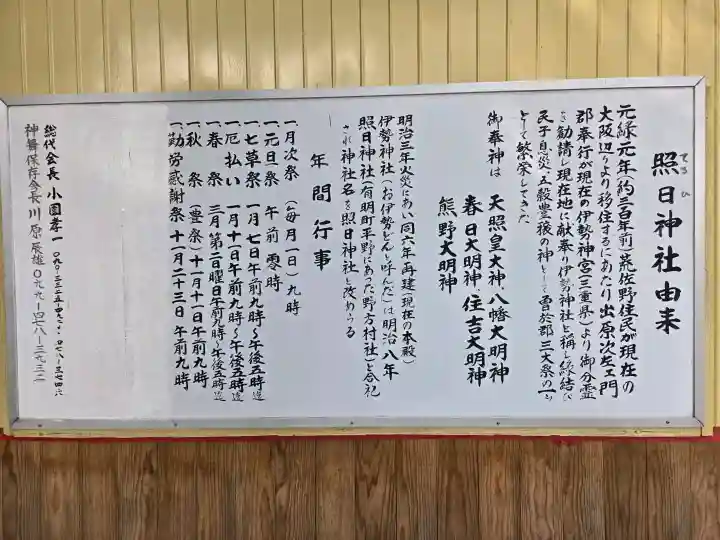 照日神社由来
てる ひ
元緑元年(約三百年前)荒佐野住民が現在の
大阪辺りより移住するにあたり出原次左ェ門
郡奉行が現在の伊勢神宮(三重県)より御分霊
を勧請し現在地に献奉り伊勢神社と称し縁結び
民子息災・五穀豊穣の神として曽於郡三大祭の一つ
として繁栄してきた
御奉神は 天照皇大神・八幡大明神
春日大明神・住吉大明神
熊野大明神
明治三年火災にあい同六年再建(現在の本殿)
伊勢神社(お伊勢どんと呼んだ)は明治八年
照日神社(有明町平野にあった野方村社)と合祀
され神社名を照日神社と改めらる
年間行事
一月次祭(毎月一日)九時
一元旦祭 午前零時
一七草祭 一月七日午前九時〜午後五時迄
一厄払い 一月十日午前九時〜午後五時迄
一春祭 三月第二日曜日午前九時〜午後五時迄
一秋祭(豊祭)十一月十一日午前九時
一勤労感謝祭 十一月二十三日午前九時
総代会長 小園孝一
神舞保存会長 川原辰雄 〇九九-四七八-三七三二